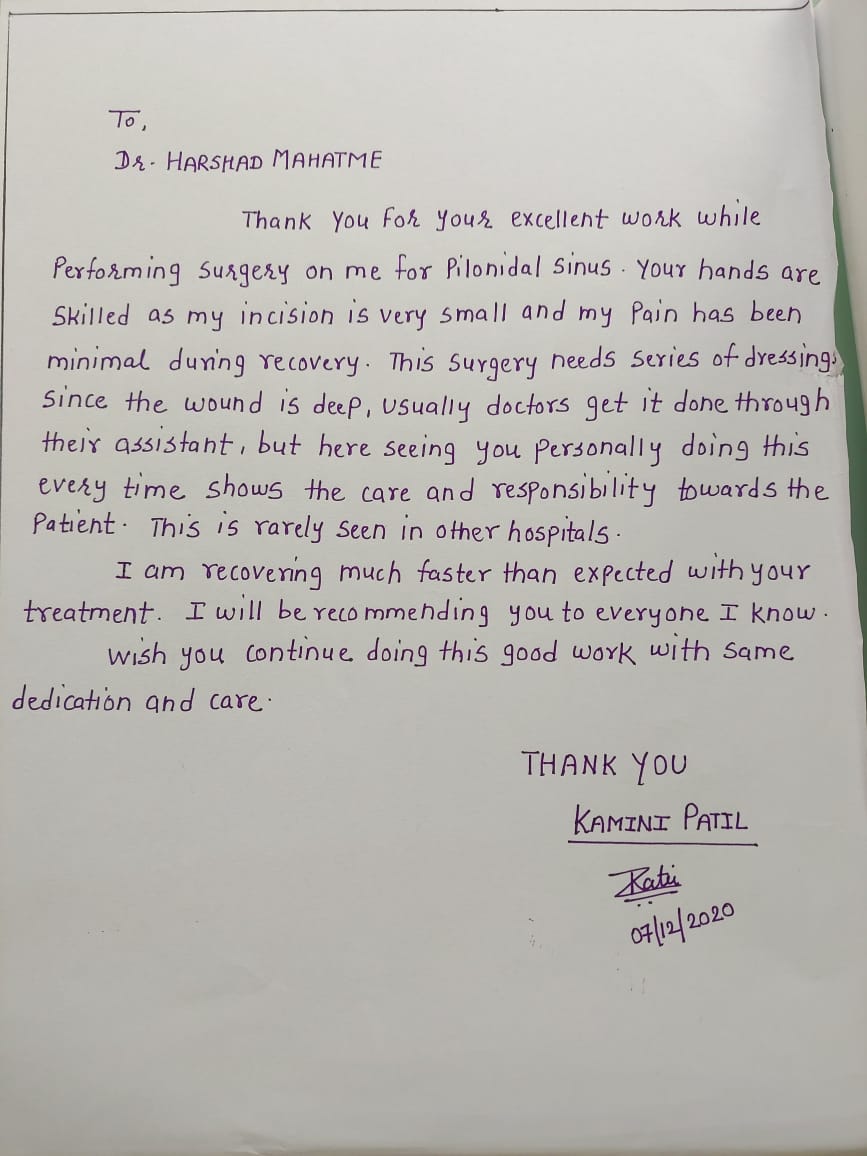 To,
Dr. HARSHAD MAHATME
Thank You For Your excellent work while
Performing surgery on me for Pilonidal Sinus. Your hands are
Skilled as my incision is very small and my Pain has been
minimal during recovery. This Surgery needs series of dressings
Since the wound is deep, Usually doctors get it done through
their assistant, but here seeing you Personally doing this
every time shows the care and responsibility towards the
Patient. This is rarely Seen in other hospitals.
I am recovering much faster than expected with your
treatment. I will be recommending you to everyone I know.
Wish you continue doing this good work with Same
dedication and care.
THANK YOU
KAMINI PATIL
07/12/2020